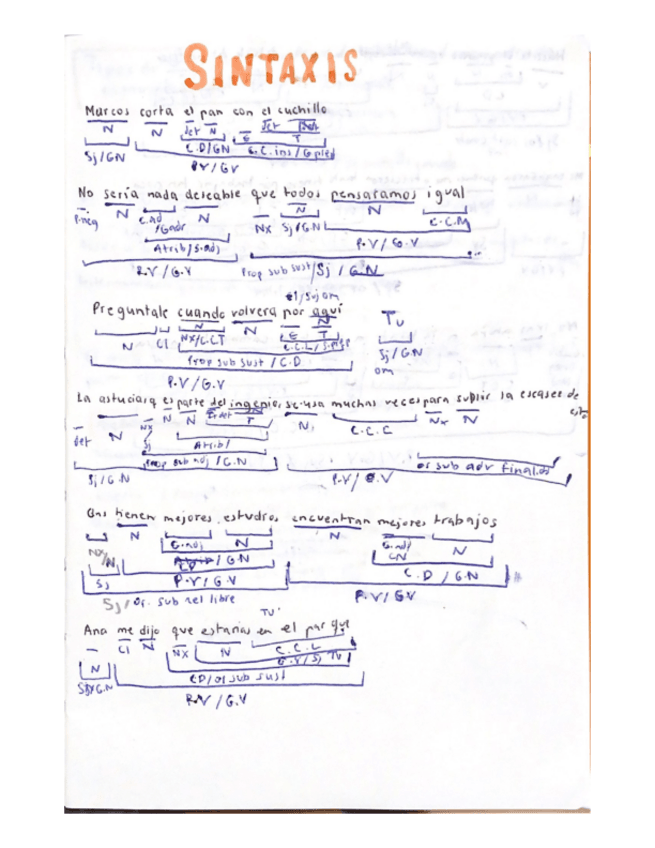 SINTAXIS
Marcos corta el pan con el cuchillo
N N Det N E Det
C.D/GN C.C.ins/G.prep
Sj/GN
P.V/GV
No sería nada deseable que todos pensaramos igual
P.neg N N NX Sj/G.N N C.C.M
Atrib/S.adj P.V/G.V
P.V/G.V Prop sub sust/Sj/G.N
el/Suj om
Preguntale cuando volvera por aquí Tu
N CI NX/C.C.T N E T Sj/G.N
C.C.L/S.prep om
Prop sub sust/C.D
P.V/G.V
La astucia q es parte del ingenio, se usa muchas veces para suplir la escasez de
det N NX N N T N C.C.C NX N
Sj Atrib/
Sj/G.N Prop sub adj/G.N P.V/G.V or sub adv final
Qns tienen mejores estudios encuentran mejores trabajos
NX/N N G.adj N N G.adj/CN N
C.D/G.N
Sj P.V/G.V P.V/GV
Sj/Or. sub rel libre
TU
Ana me dijo que estarias en el parque
N CI N NX N C.C.L
G.V/Sj TU
CD/or sub sust
P.V/G.V